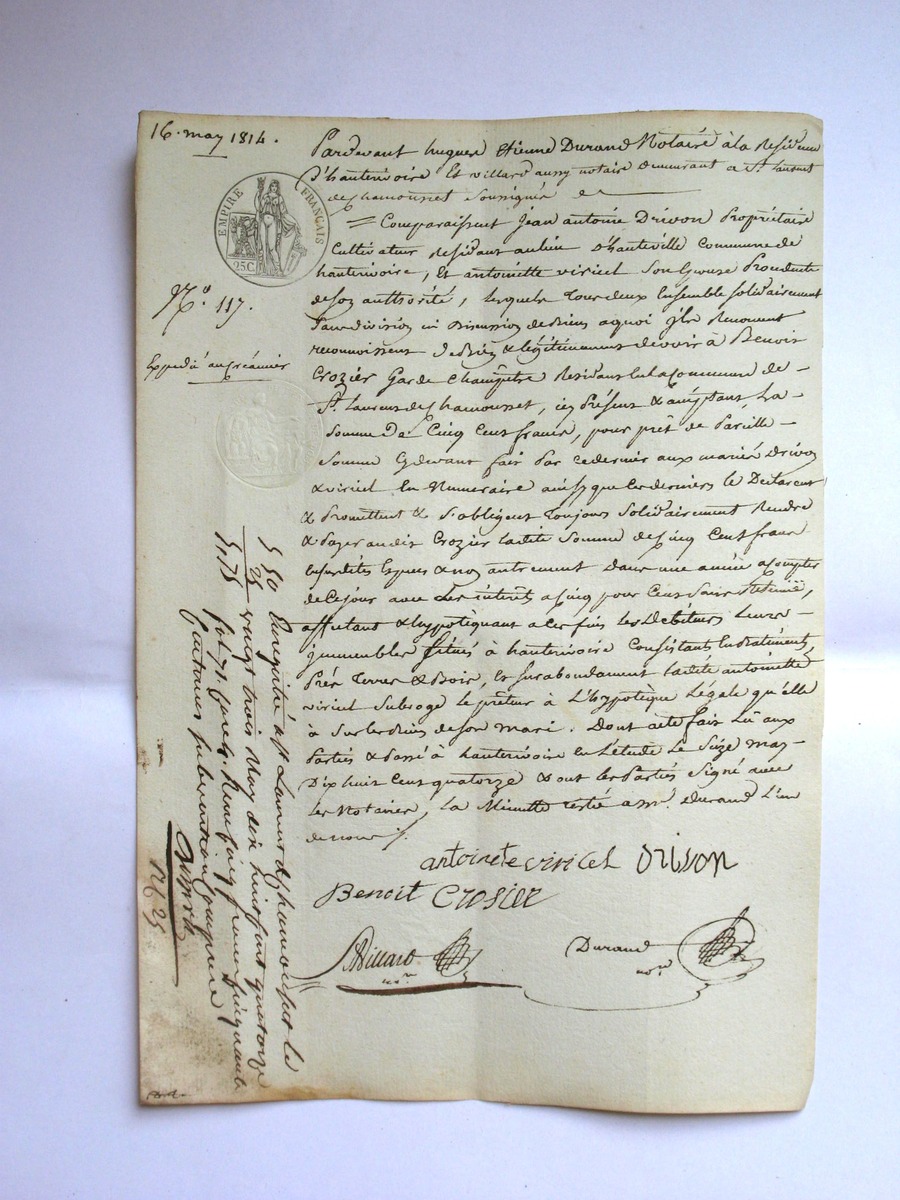 16. may 1814.
EMPIRE FRANÇAIS
25C
N.º 117.
Expedié au créancier
Pardevant hugues Etienne Durand Notaire à la Residence
d'hauterivoire Et villard aussy notaire demeurant a St. laurent
de chamousset Soussignés
= Comparaissent Jean antoine Drivon Propriétaire
Cultivateur Residant au lieu d'hauteville Commune de
hauterivoire, Et antoinette viricel Son Epouse Procedante
de son authorité, lesquels Tous deux Ensemble Solidairement
Sans division ni Discussion de Biens a quoi ils Renoncent
reconnoissent de Bien & légitimement devoir à Benoit
Crozier Garde Champêtre Residant en la Commune de
St. laurent de Chamousset, icy Présent & acceptant, La
Somme De Cinq Cent francs, pour prêt de Pareille
Somme Cydevant fait Par ce dernier aux mariés Drivon
& viricel En Numeraire ainsy que les derniers le Déclarent
& Promettent & S'obligent Toujours Solidairement Rendre
& Payer audit Crozier ladite Somme de Cinq Cent francs
Susdites Especes & non autrement Dans une année a compter
de ce jour avec Les interêts a Cinq pour Cent Sans Retenüe,
affectant & hyppotéquant a ces fins les Debiteurs Leurs
immeubles Situés à hauterivoire Consistants En Batiments,
Prés Terres & Bois, Et Surabondament ladite antoinette
viricel Subroge le prêteur à L'hyppotèque Légale qu'elle
à Sur les biens de Son mari. Dont acte fait Lû aux
Parties & Passé à hauterivoire En L'étude Le Seize may
Dix huit Cent quatorze & ont les Parties Signé avec
les Notaires, La Minutte restée a Me. Durand L'un
de nous
antoinete viricel Drivon
Benoit Crosier
Villard
nore
Durand
nore
5 50 Enregistré à St Laurent de chamousset le
25 vingt trois May dix huit cent quatorze
5,75 fol 71. Reçu cinq francs cinquante
Centimes subvention comprise